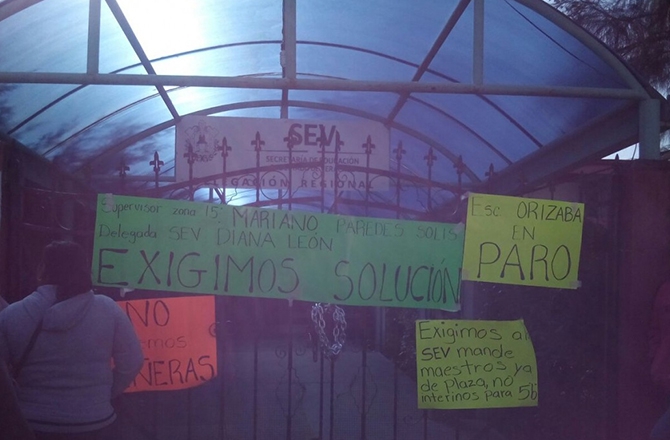 SEV
SECRETARÍA DE EDUCACIÓN
GACIÓN REGIONAL
Supervisor zona 15: MARIANO PAREDES SOLIS
Delegada SEV DIANA LEÓN
EXIGIMOS SOLUCIÓN
Esc. ORIZABA
EN
PARO
NO
emos
ÑERAS
Exigimos al
SEV mande
maestros ya
de plaza, no
interinos para 5b